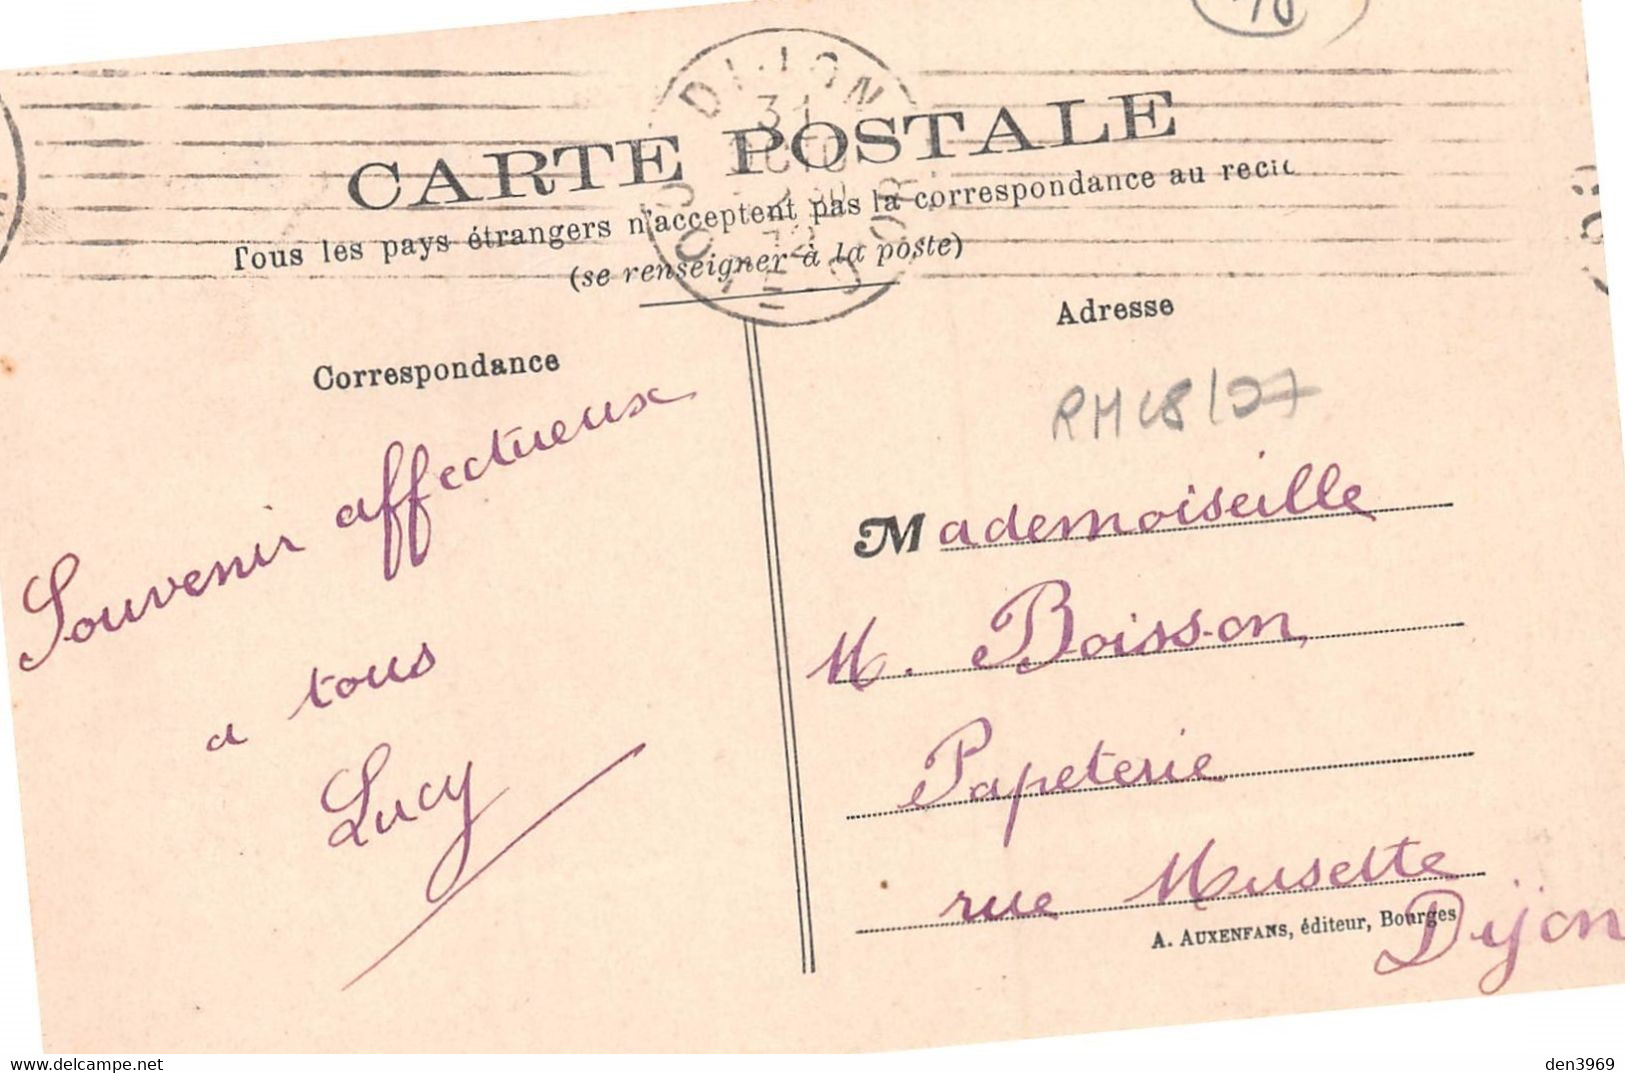 DIJON
31
CARTE POSTALE
Tous les pays étrangers n'acceptent pas la correspondance au recto
(se renseigner à la poste)
Correspondance
Souvenir affectueux
a tous
Lucy
Adresse
RM 18/27
Mademoiselle
M. Boisson
Papeterie
rue Musette
Dijon
A. AUXENFANS, éditeur, Bourges
www.delcampe.net
den3969